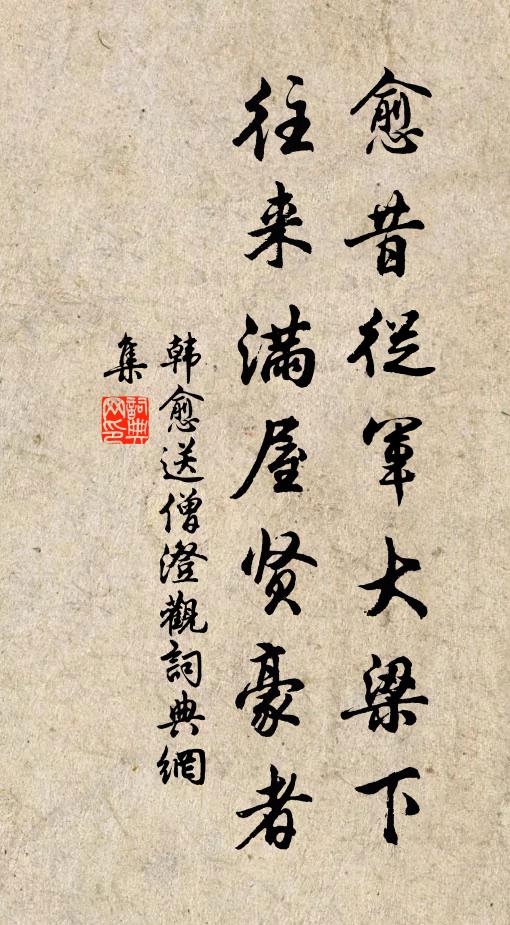 愈昔從軍大梁下
往来滿屋贤豪者
韩愈送僧澄觀詞典網
集
詞典網印